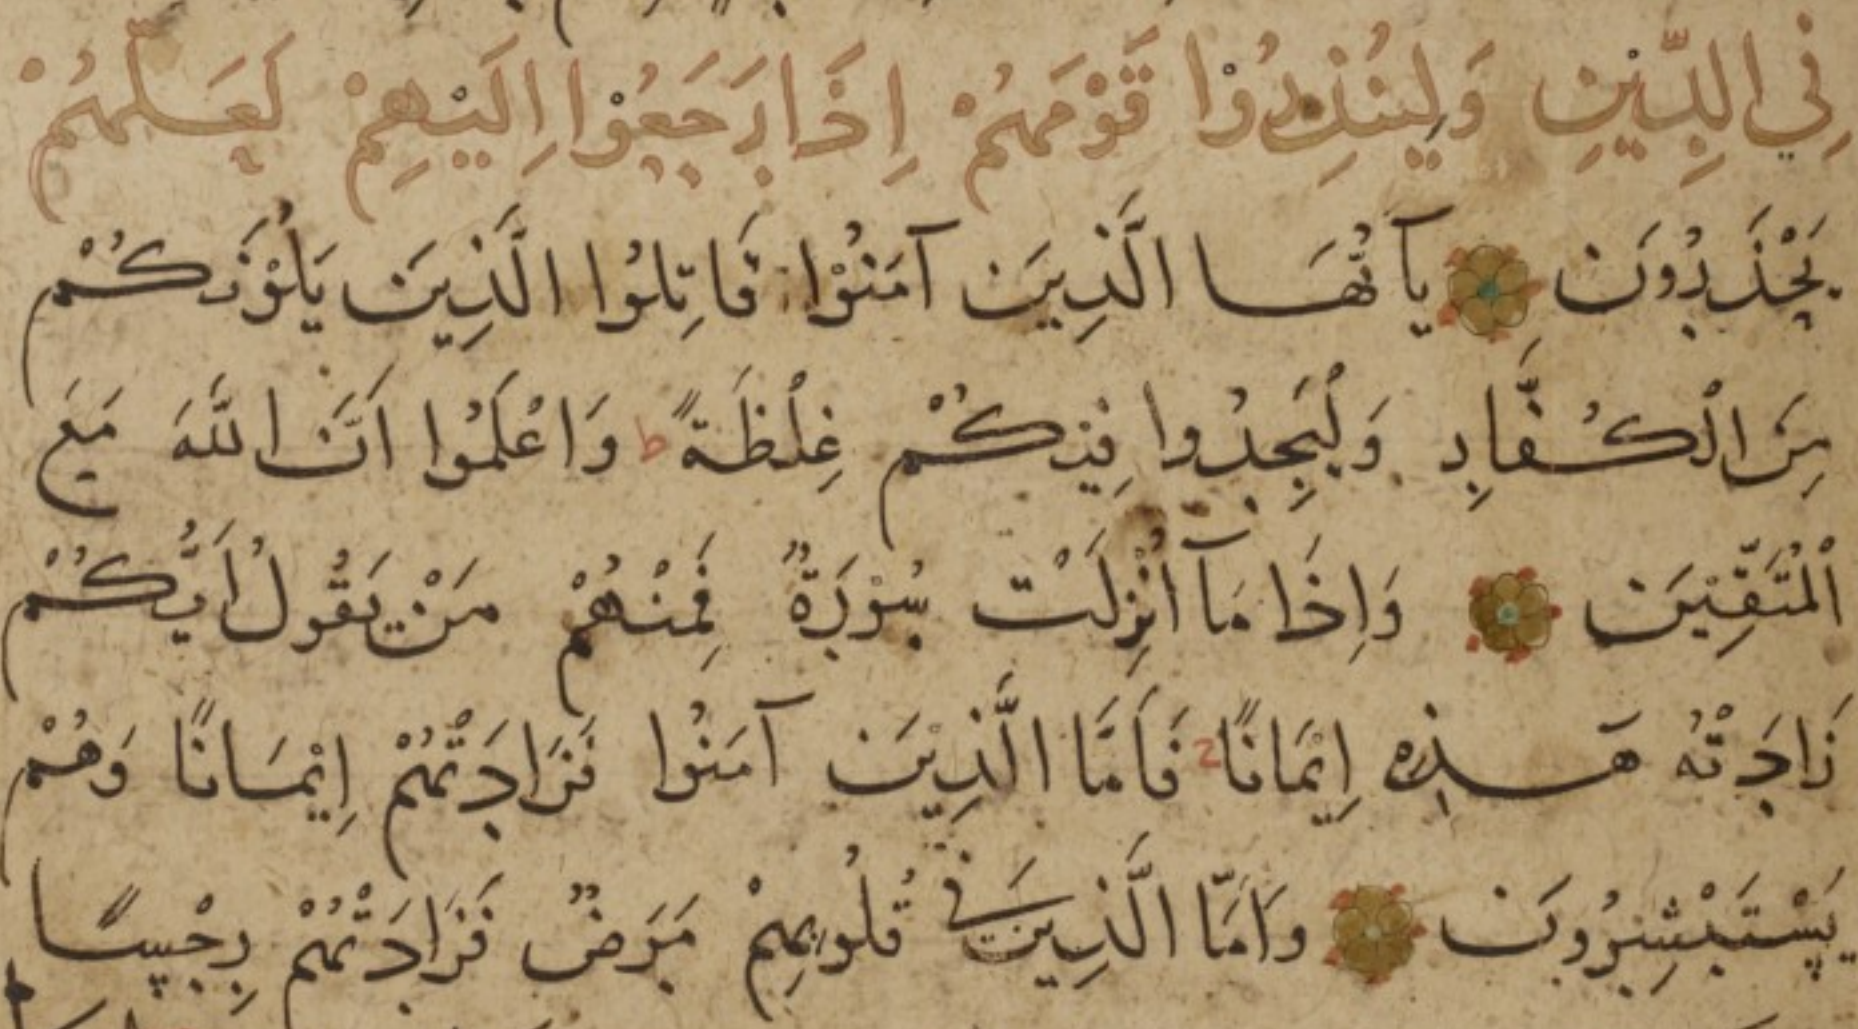 فِي الدِّيْنِ وَلِيُنْذِرُوْا قَوْمَهُمْ اِذَا رَجَعُوْا اِلَيْهِمْ لَعَلَّهُمْ
يَحْذَرُونَ يَآ اَيُّهَا الَّذِينَ آمَنُوْا قَاتِلُوا الَّذِينَ يَلُوْنَكُمْ
مِنَ الْكُفَّارِ وَلْيَجِدُوا فِيْكُمْ غِلْظَةً ط وَاعْلَمُوا اَنَّ اللّٰهَ مَعَ
الْمُتَّقِيْنَ وَاِذَا مَآ اُنْزِلَتْ سُوْرَةٌ فَمِنْهُمْ مَنْ يَقُولُ اَيُّكُمْ
زَادَتْهُ هَذِهِ اِيْمَانًا ج فَاَمَّا الَّذِيْنَ آمَنُوا فَزَادَتْهُمْ اِيْمَانًا وَهُمْ
يَسْتَبْشِرُونَ وَاَمَّا الَّذِينَ فِي قُلُوبِهِمْ مَرَضٌ فَزَادَتْهُمْ رِجْسًا